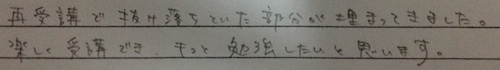 再受講で抜け落ちていた部分が埋まってきました。
楽しく受講でき、もっと勉強したいと思います。